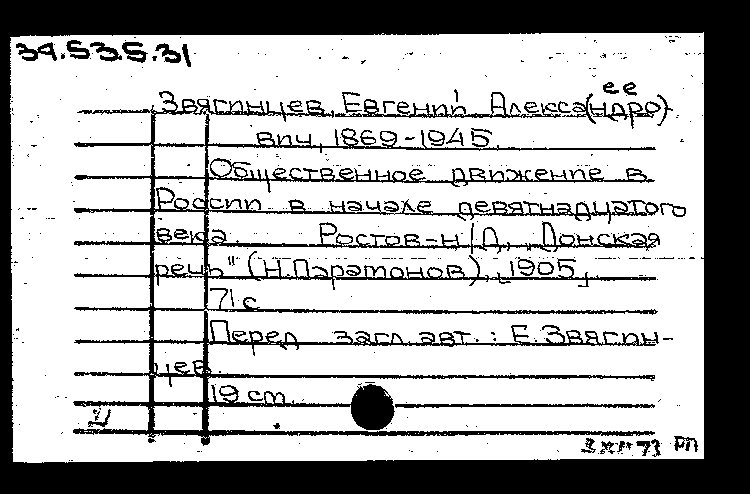 34.53.5.31
ее
Звягинцев, Евгений Алекса(ндро)-
вич, 1869-1945.
Общественное движение в
России в начале девятнадцатого
века. Ростов-н/Д, „Донская
речь" (Н.Парамонов), [1905]
71 с
Перед загл. авт.: Е. Звягин-
цев.
19 cm
73 РП